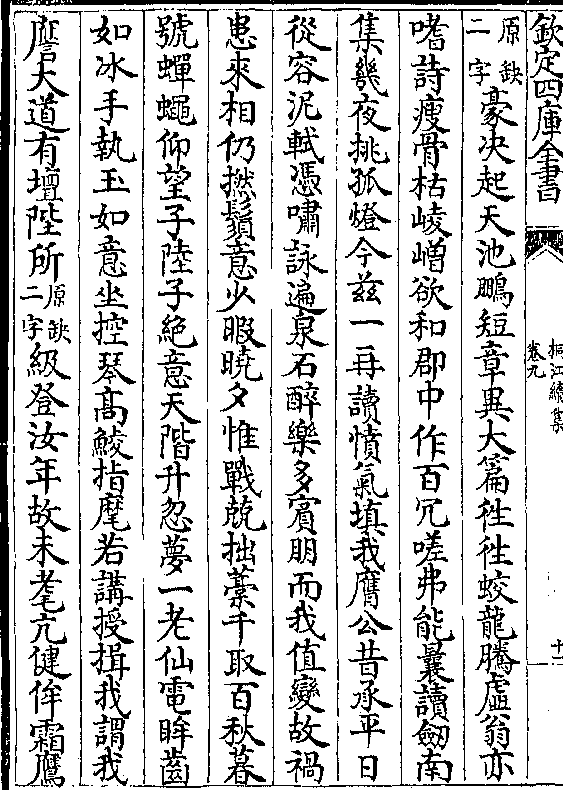 欽定四庫全書
桐江續集
卷九
十一
原缺二字豪決起天池鵬短章異大篇徃徃蛟龍騰虛翁亦
嗜詩瘦骨枯崚嶒欲和郡中作百冗嗟弗能曩讀劒南
集幾夜挑孤燈今兹一再讀憤氣填我膺公昔承平日
從容泥軾憑嘯詠遍泉石醉樂多賓朋而我值變故禍
患來相仍撚鬚意少暇曉夕惟戰兢拙藁千取百秋暮
號蟬蠅仰望子陸子絶意天階升忽夢一老仙電眸齒
如冰手執玉如意坐控琴高鯪指麾若講授揖我謂我
譍大道有壇陛所原缺二字級登汝年故未耄亢健侔霜鷹